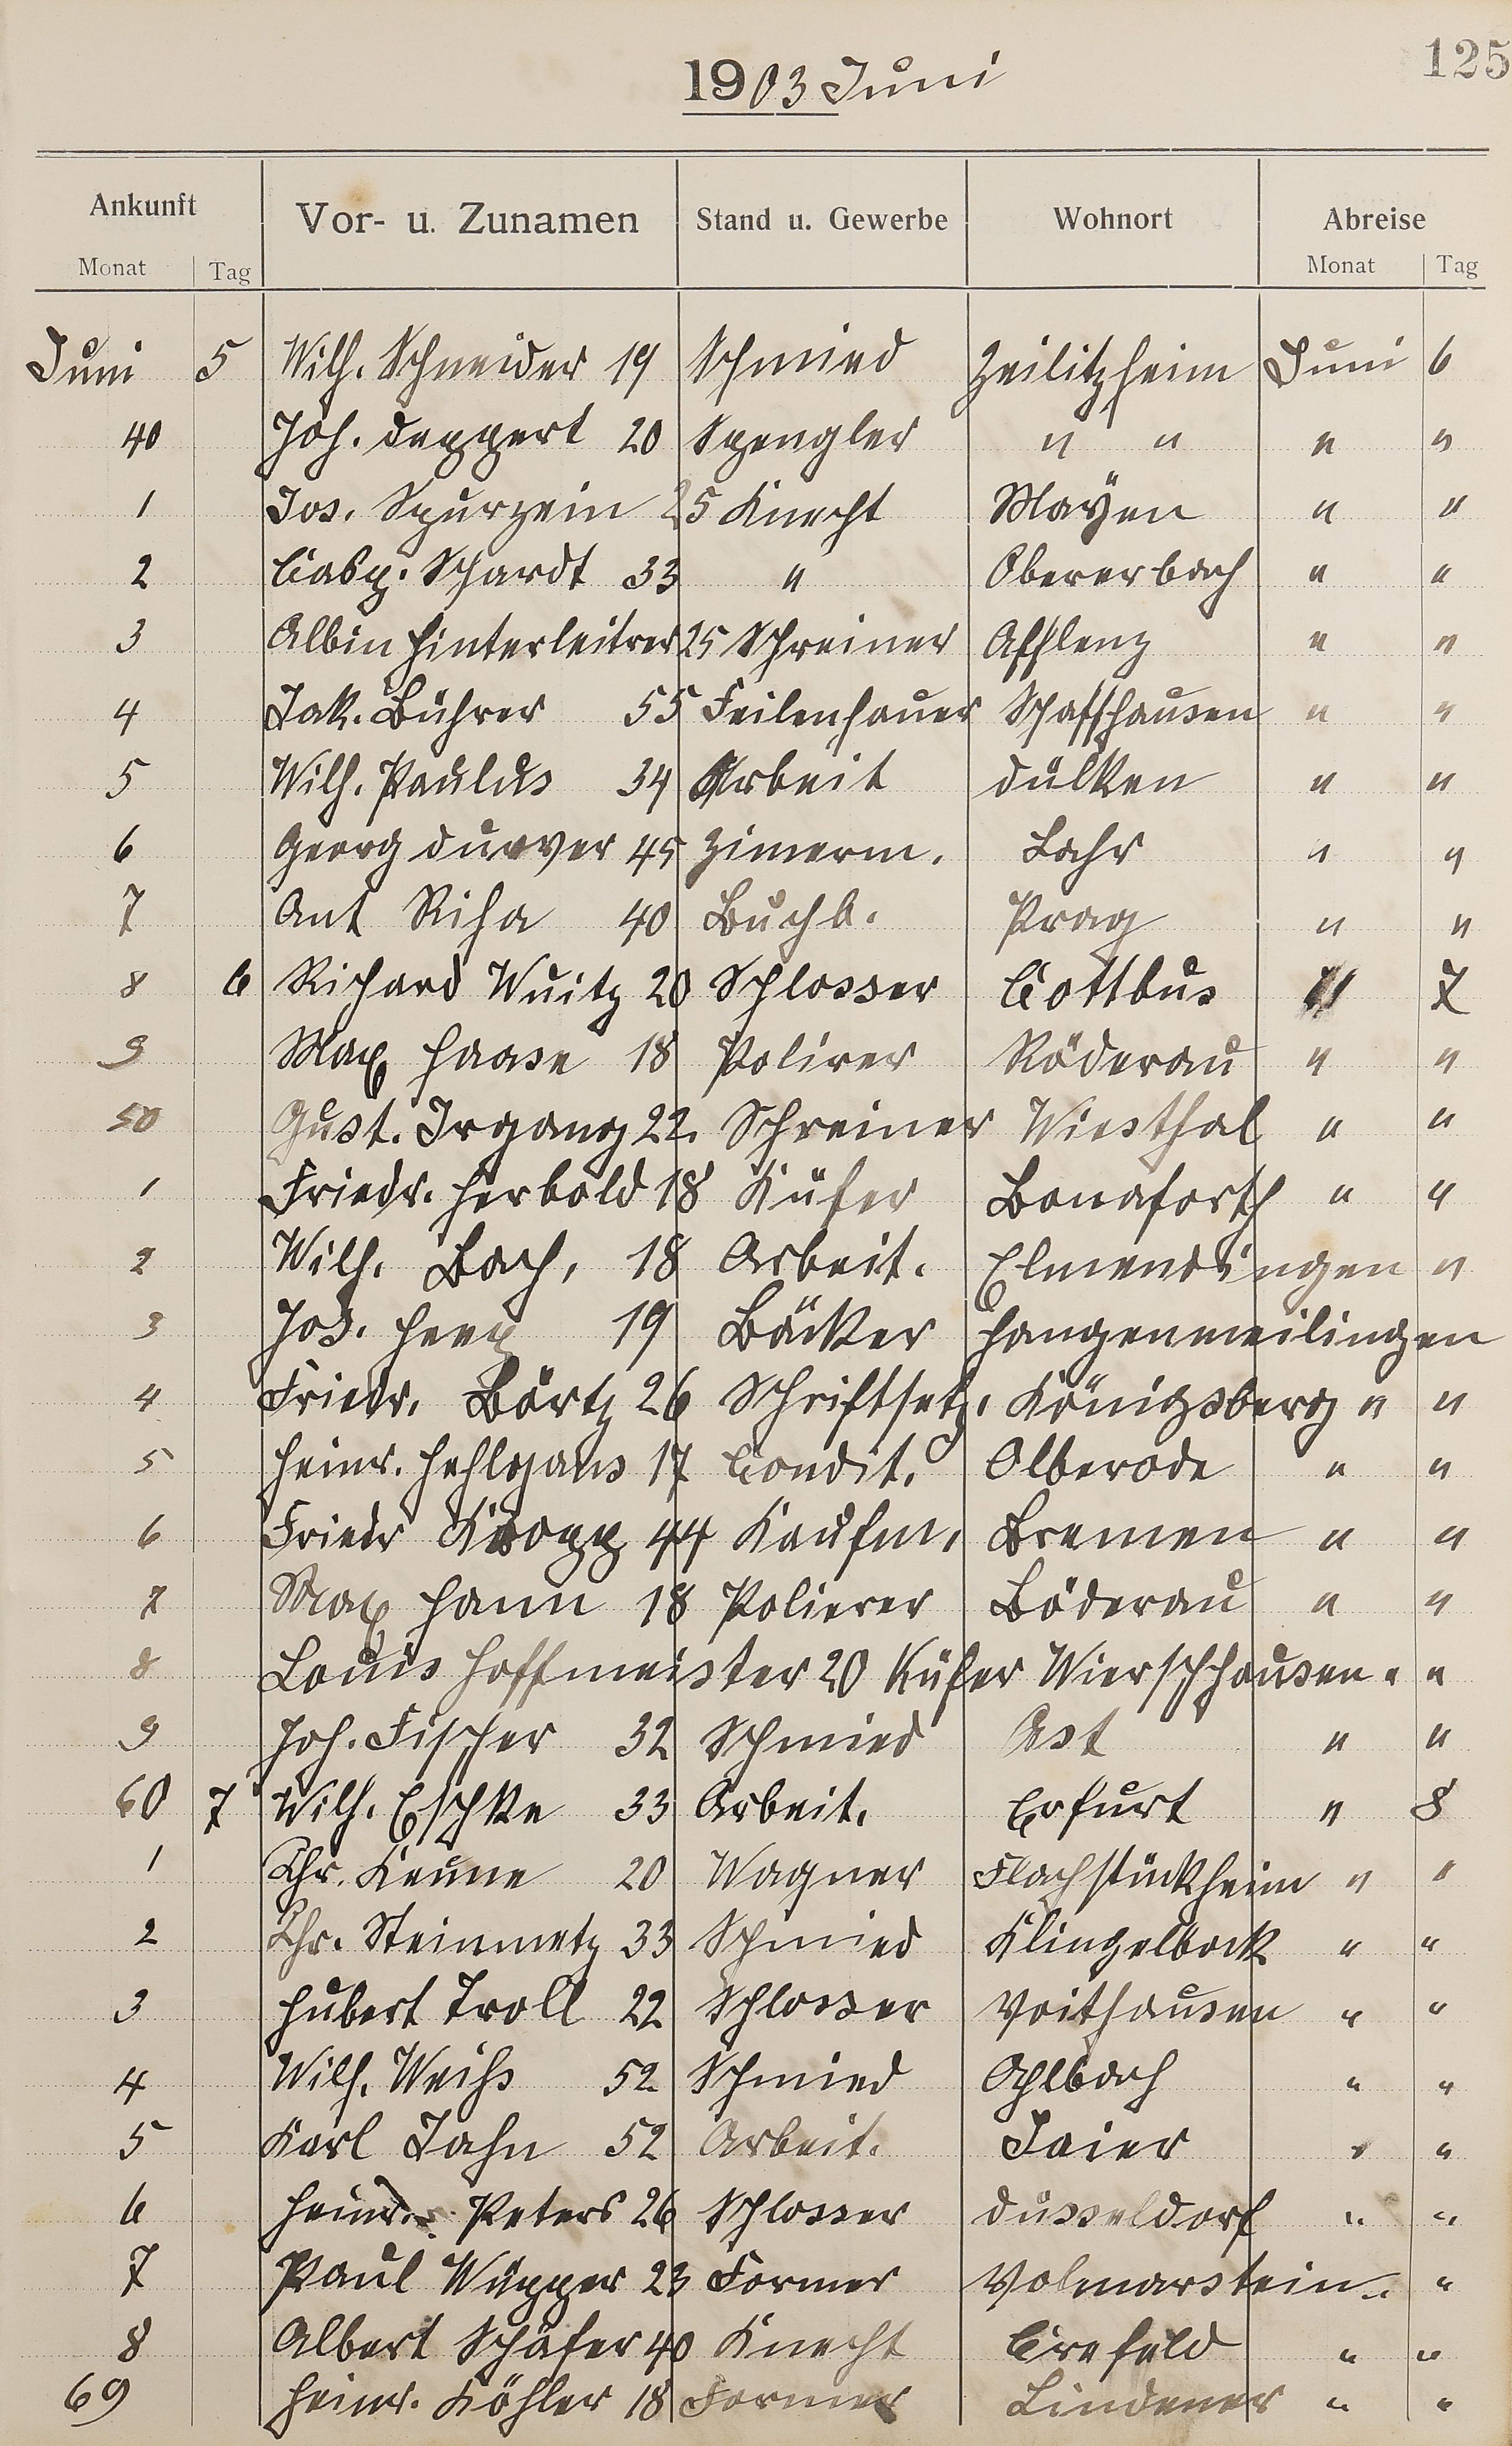 125
1903 Juni
Ankunft Vor- u. Zunamen Stand u. Gewerbe Wohnort Abreise
Monat Tag Monat Tag
Juni 5 Wilh. Schneider 19 Schmied Zeilitzheim Juni 6
40 Joh. Deppert 20 Spengler " " " "
1 Jos. Spurzein 25 Knecht Mayen " "
2 Casp. Schardt 33 " Obererbach " "
3 Albin Hinterleitner 25 Schreiner Afflenz " "
4 Jak. Bührer 55 Feilenhauer Schaffhausen " "
5 Wilh. Paulus 34 Arbeit Dülken " "
6 Georg 45 Zimerm. Lahr " "
7 Ant Riha 40 Buchb. Prag " "
8 6 Richard Wuitz 20 Schlosser Cottbus " 7
9 Max Haase 18 Polirer Röderau " "
50 Gust. Irgang 22. Schreiner Wiesthal " "
1 Friedr. Herbold 18 Küfer Bonaforth " "
2 Wilh. Bach, 18 Arbeit. Elmendingen "
3 Jos. Heep 19 Bäcker Hangenmeilingen
4 Friedr. Börtz 26 Schriftsetz. Königsberg " "
5 Heinr. Hehlgans 17 Condit. Olberode " "
6 Friedr Kropp 44 Kaufm. Bremen " "
7 Max Hann 18 Polierer Böderau " "
8 Louis Hoffmeister 20 Küfer Wierschhausen " "
9 Joh. Fischer 32 Schmied Ast " "
60 7 Wilh. Eschke 33 Arbeit. Erfurt " 8
1 Chr. Keune 20 Wagner Flachstückheim " "
2 Chr. Steinmetz 33 Schmied Klingelback " "
3 Hubert Troll 22 Schlosser Voithausen " "
4 Wilh. Weihs 52 Schmied Ahlbach " "
5 Karl Jahn 52 Arbeit. Jaier " "
6 Heinr. Peters 26 Schlosser Düsseldorf " "
7 Paul Wüpper 23 Former Volmarstein " "
8 Albert Schäfer 40 Knecht Crefeld " "
69 Heinr. Köhler 18 Former Lindener " "